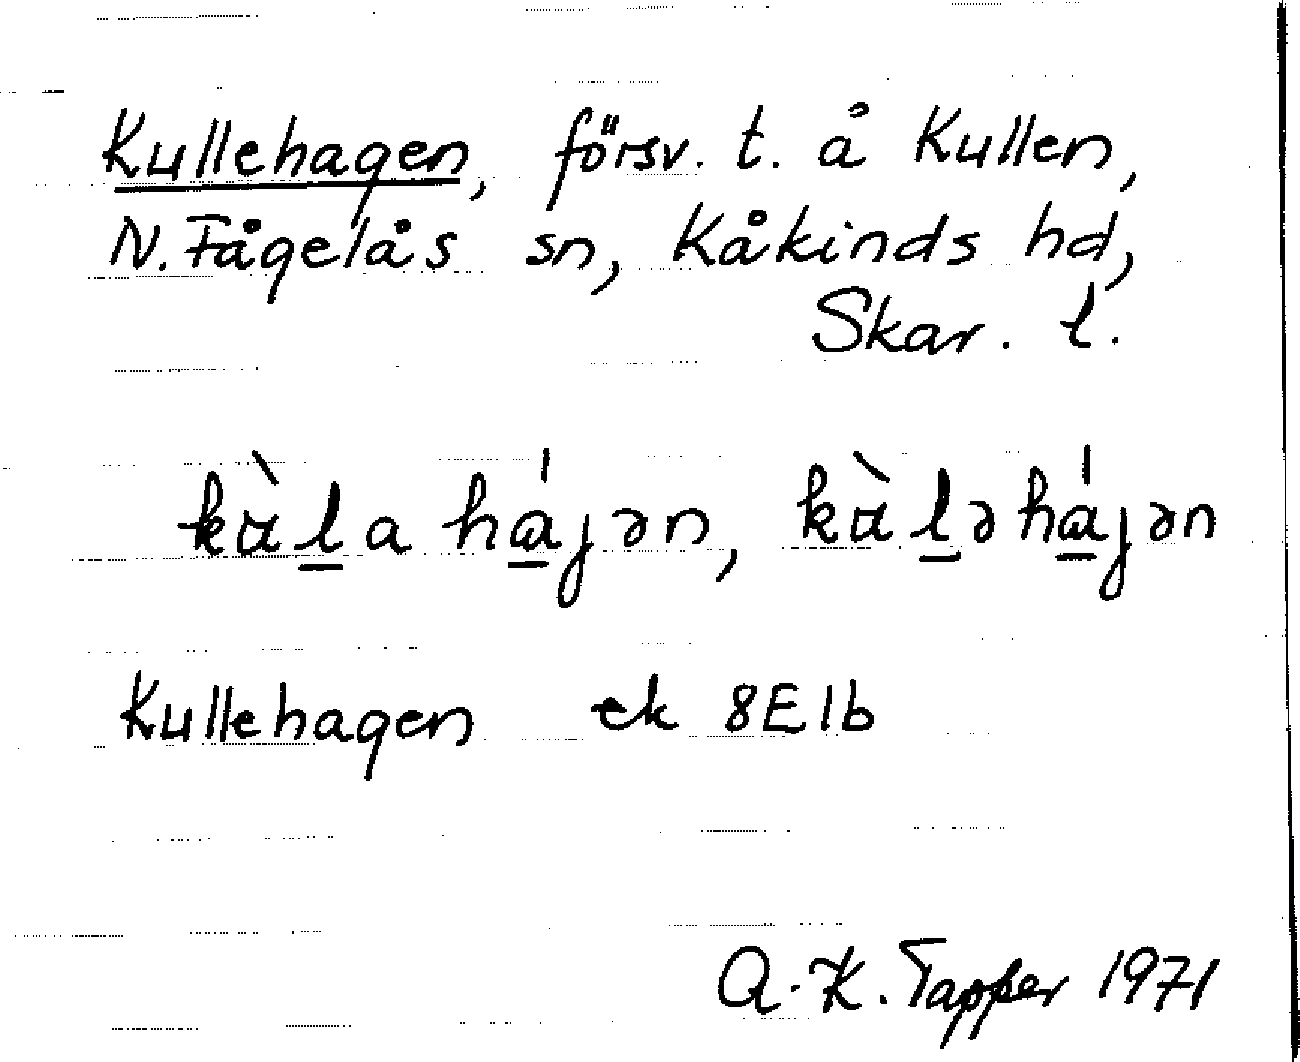 Kullehagen, försv. t. å Kullen,
N. Fågelås sn, Kåkinds hd,
Skar. l.
kɯ̀l̲a ha̲̍jən, kɯ̀l̲əha̲̍jən
Kullehagen ek 8E1b
A.-K. Tapper 1971